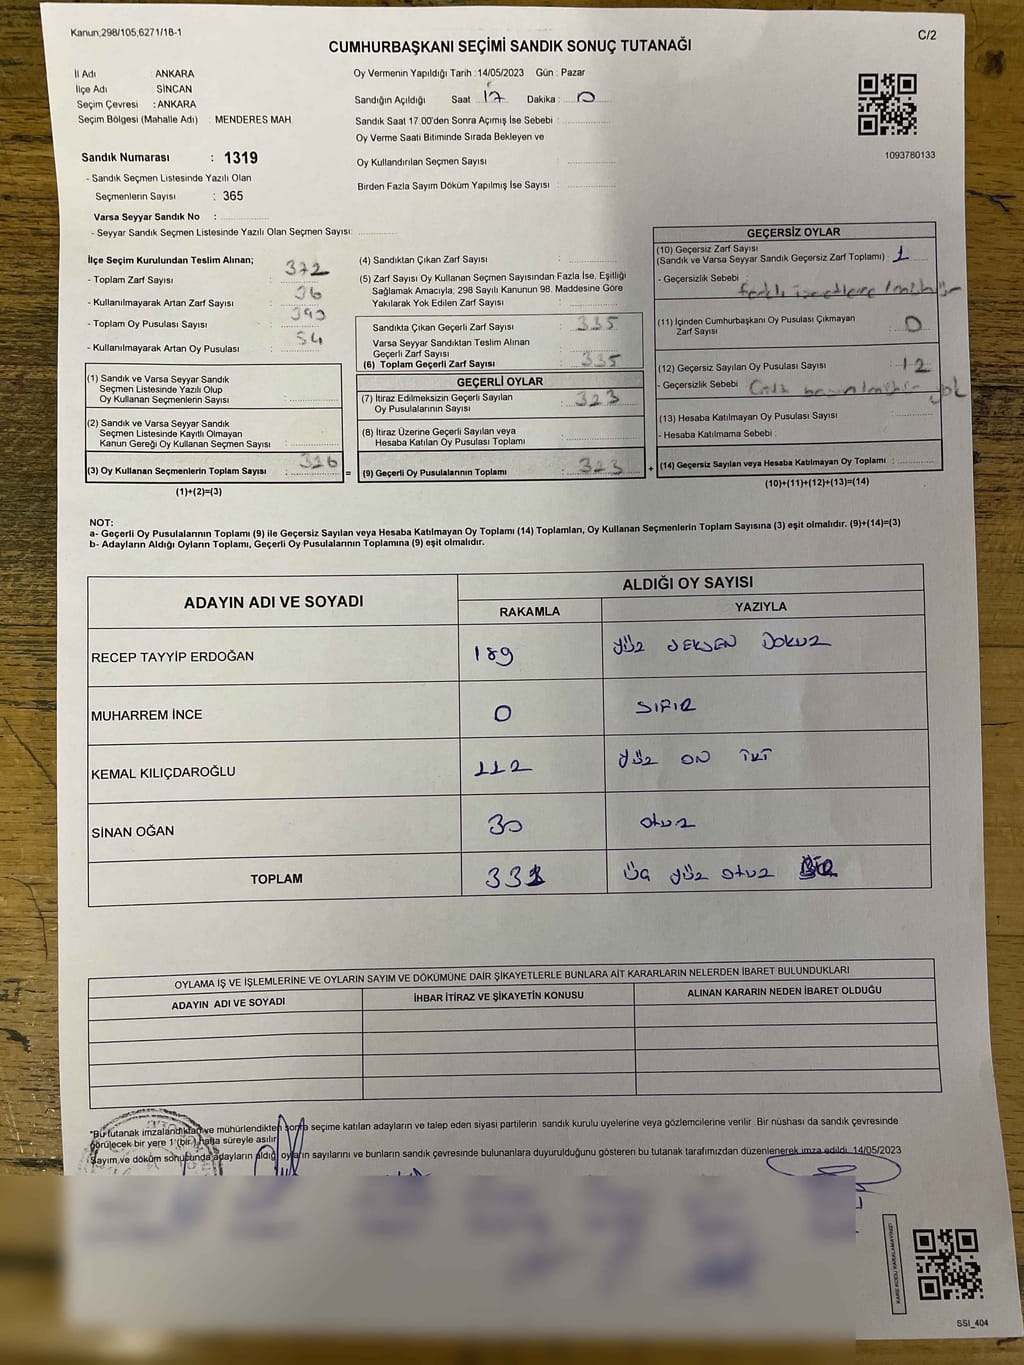 Kanun;298/105,6271/18-1
C/2
CUMHURBAŞKANI SEÇİMİ SANDIK SONUÇ TUTANAĞI
İl Adı ANKARA
İlçe Adı SİNCAN
Seçim Çevresi : ANKARA
Seçim Bölgesi (Mahalle Adı) : MENDERES MAH
Sandık Numarası : 1319
- Sandık Seçmen Listesinde Yazılı Olan
Seçmenlerin Sayısı : 365
Varsa Seyyar Sandık No :
- Seyyar Sandık Seçmen Listesinde Yazılı Olan Seçmen Sayısı:
Oy Vermenin Yapıldığı Tarih :14/05/2023 Gün : Pazar
Sandığın Açıldığı Saat 17 Dakika : 0
Sandık Saat 17.00'den Sonra Açımış İse Sebebi :
Oy Verme Saati Bitiminde Sırada Bekleyen ve
Oy Kullandırılan Seçmen Sayısı
Birden Fazla Sayım Döküm Yapılmış İse Sayısı :
1093780133
İlçe Seçim Kurulundan Teslim Alınan;
- Toplam Zarf Sayısı : 372
- Kullanılmayarak Artan Zarf Sayısı : 36
- Toplam Oy Pusulası Sayısı : 390
- Kullanılmayarak Artan Oy Pusulası : 54
(1) Sandık ve Varsa Seyyar Sandık
Seçmen Listesinde Yazılı Olup
Oy Kullanan Seçmenlerin Sayısı :
(2) Sandık ve Varsa Seyyar Sandık
Seçmen Listesinde Kayıtlı Olmayan
Kanun Gereği Oy Kullanan Seçmen Sayısı :
(3) Oy Kullanan Seçmenlerin Toplam Sayısı : 336
(1)+(2)=(3)
=
(4) Sandıktan Çıkan Zarf Sayısı :
(5) Zarf Sayısı Oy Kullanan Seçmen Sayısından Fazla İse, Eşitliği
Sağlamak Amacıyla, 298 Sayılı Kanunun 98. Maddesine Göre
Yakılarak Yok Edilen Zarf Sayısı :
Sandıkta Çıkan Geçerli Zarf Sayısı : 335
Varsa Seyyar Sandıktan Teslim Alınan
Geçerli Zarf Sayısı
(6) Toplam Geçerli Zarf Sayısı : 335
GEÇERLİ OYLAR
(7) İtiraz Edilmeksizin Geçerli Sayılan
Oy Pusulalarının Sayısı : 323
(8) İtiraz Üzerine Geçerli Sayılan veya
Hesaba Katılan Oy Pusulası Toplamı :
(9) Geçerli Oy Pusulalarının Toplamı : 323
+
GEÇERSİZ OYLAR
(10) Geçersiz Zarf Sayısı
(Sandık ve Varsa Seyyar Sandık Geçersiz Zarf Toplamı) : 1
- Geçersizlik Sebebi :
(11) İçinden Cumhurbaşkanı Oy Pusulası Çıkmayan
Zarf Sayısı : 0
(12) Geçersiz Sayılan Oy Pusulası Sayısı : 12
- Geçersizlik Sebebi
(13) Hesaba Katılmayan Oy Pusulası Sayısı :
- Hesaba Katılmama Sebebi :
(14) Geçersiz Sayılan veya Hesaba Katılmayan Oy Toplamı :
(10)+(11)+(12)+(13)=(14)
NOT:
a- Geçerli Oy Pusulalarının Toplamı (9) ile Geçersiz Sayılan veya Hesaba Katılmayan Oy Toplamı (14) Toplamları, Oy Kullanan Seçmenlerin Toplam Sayısına (3) eşit olmalıdır. (9)+(14)=(3)
b- Adayların Aldığı Oyların Toplamı, Geçerli Oy Pusulalarının Toplamına (9) eşit olmalıdır.
ADAYIN ADI VE SOYADI ALDIĞI OY SAYISI
RAKAMLA YAZIYLA
RECEP TAYYİP ERDOĞAN 189 YÜZ SEKSEN DOKUZ
MUHARREM İNCE 0 SIFIR
KEMAL KILIÇDAROĞLU 112 YÜZ ON İKİ
SİNAN OĞAN 30 otuz
TOPLAM 331 Üç yüz otuz BİR
OYLAMA İŞ VE İŞLEMLERİNE VE OYLARIN SAYIM VE DÖKÜMÜNE DAİR ŞİKAYETLERLE BUNLARA AİT KARARLARIN NELERDEN İBARET BULUNDUKLARI
ADAYIN ADI VE SOYADI İHBAR İTİRAZ VE ŞİKAYETİN KONUSU ALINAN KARARIN NEDEN İBARET OLDUĞU
*Bu tutanak imzalandıktan ve mühürlendikten sonra seçime katılan adayların ve talep eden siyasi partilerin sandık kurulu üyelerine veya gözlemcilerine verilir. Bir nüshası da sandık çevresinde
görülecek bir yere 1 (bir ) hafta süreyle asılır
Sayım ve döküm sonucunda adayların aldığı oyların sayılarını ve bunların sandık çevresinde bulunanlara duyurulduğunu gösteren bu tutanak tarafımızdan düzenlenerek imza edildi. 14/05/2023
SSI_404